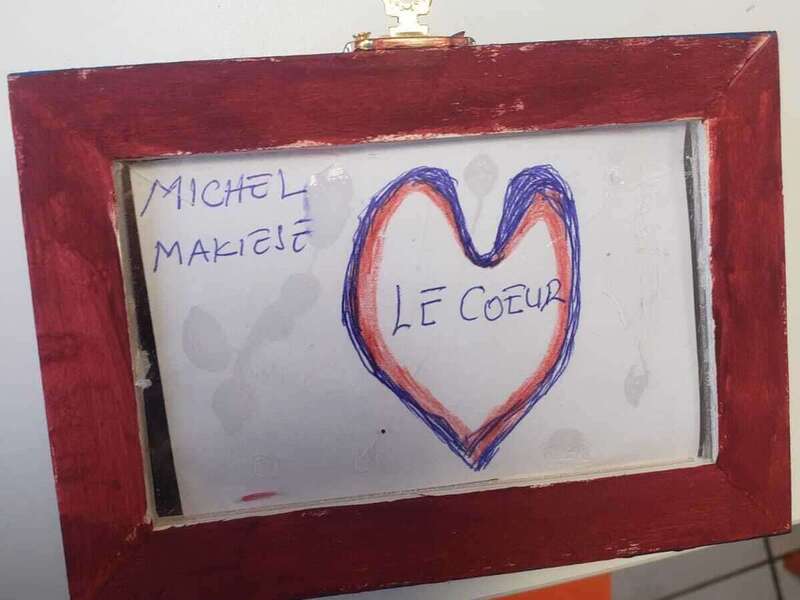 MICHEL
MAKIESE
LE COEUR